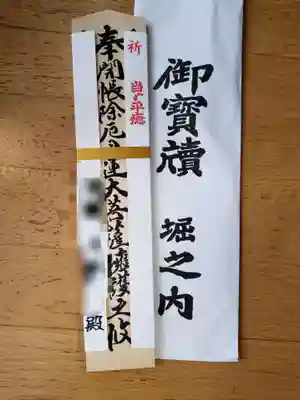 祈
平癒
奉開帳除厄日蓮大菩薩擁護之攸
殿
御寶牘 堀之内